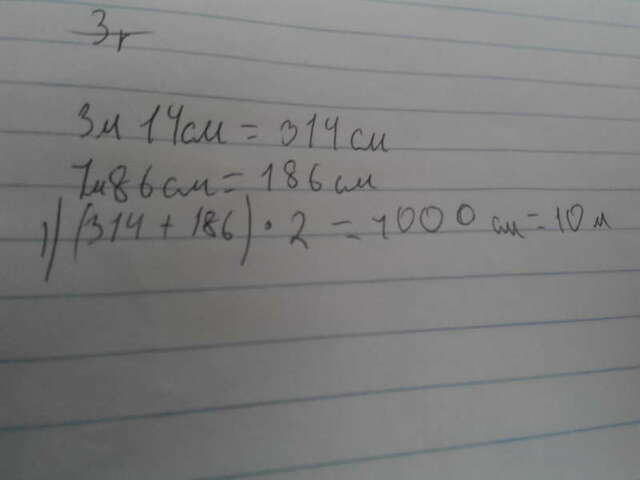 3г
3м 14см = 314см
1м86см = 186см
1) (314 + 186) · 2 = 1000 см = 10 м